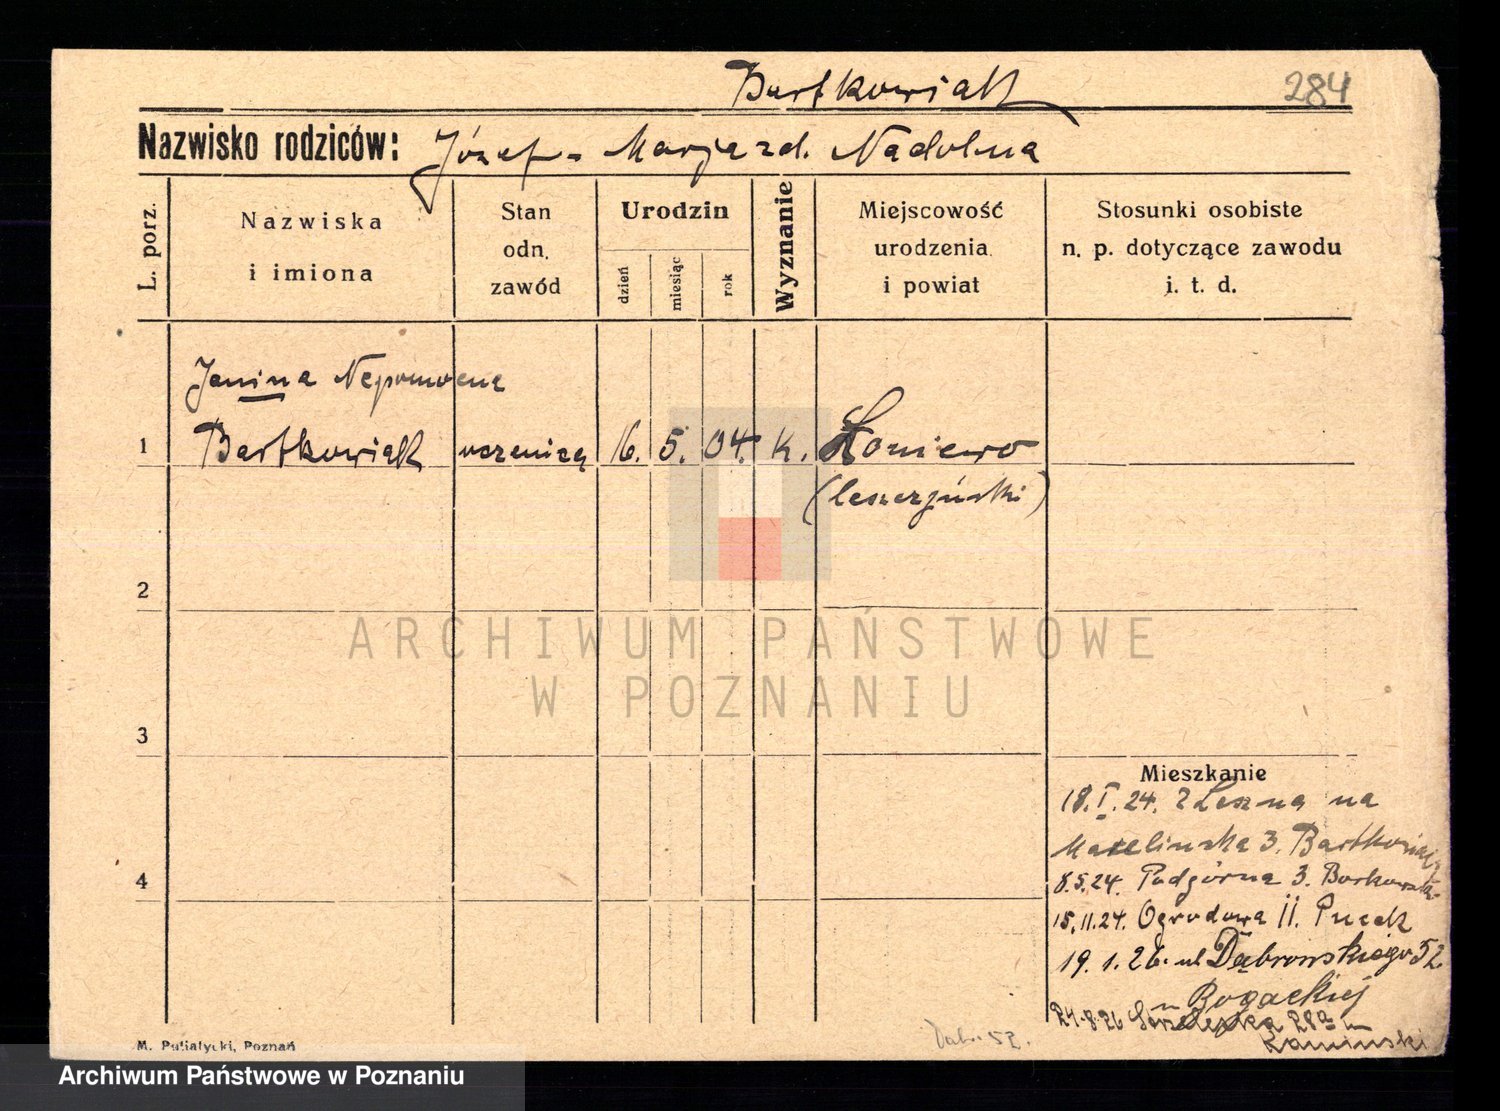 Bartkowiak 284
Nazwisko rodziców: Józef - Marja zd. Nadolna
L. porz.
Nazwiska
i imiona
Stan
odn.
zawód
Urodzin
dzień
miesiąc
rok
Wyznanie
Miejscowość
urodzenia
i powiat
Stosunki osobiste
n. p. dotyczące zawodu
i. t. d.
Janina Nepomocena
1 Bartkowiak uczenicą 16. 5. 04. k. Łoniewo
(leszczyński)
2
ARCHIWUM PAŃSTWOWE
W POZNANIU
3
Mieszkanie
18.I.24. z Leszna na
3. Bartkowiak
4
8.5.24. Podgórna 3. Borkowska
15.11.24. Ogrodowa 11.
19.1.26. ul Dąbrowskiego 52
u Bogackiej
24.8.26 28a u
Kamiński
Dąb. 52.
M. Putiatycki, Poznań
Archiwum Państwowe w Poznaniu